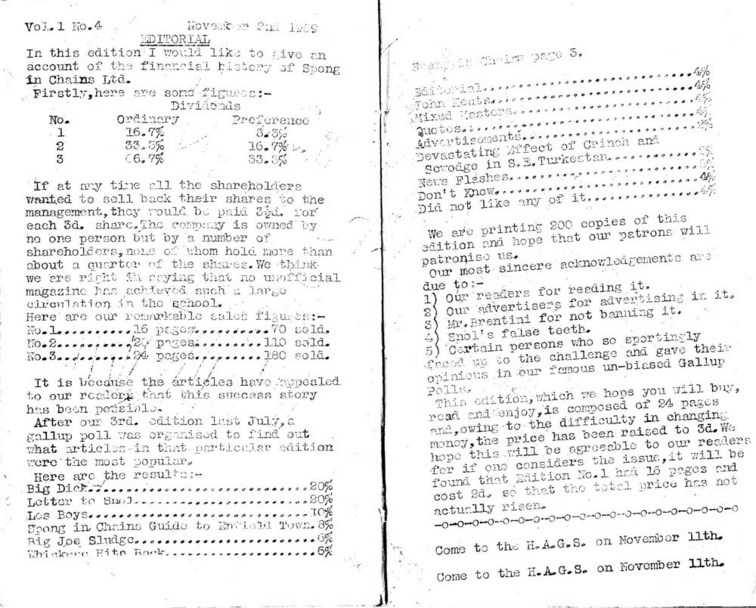 Vol.1 No.4 November 2nd 1959
EDITORIAL
In this edition I would like to give an
account of the financial history of Spong
in Chains Ltd.
Firstly,here are some figures:-
Dividends
No. Ordinary Preference
1 16.7% 8.3%
2 33.3% 16.7%
3 66.7% 33.3%
If at any time all the shareholders
wanted to sell back their shares to the
management,they would be paid 3½d. for
each 3d. share.The company is owned by
no one person but by a number of
shareholders,none of whom hold more than
about a quarter of the shares.We think
we are right in saying that no unofficial
magazine has achieved such a large
circulation in the school.
Here are our remarkable sales figures:-
No.1........16 pages........70 sold.
No.2........20 pages.......110 sold.
No.3........24 pages.......180 sold.
It is because the articles have appealed
to our readers that this success story
has been possible.
After our 3rd. edition last July,a
gallup poll was organised to find out
what articles in that particular edition
were the most popular.
Here are the results:-
Big Dick............................20%
Letter to Snol......................20%
Les Boys............................10%
Spong in Chains Guide to Enfield Town.8%
Big Joe Sludge.......................6%
Whiskers Hits Back...................6%
Spong in Chains page 3.
Editorial............................4%
John Keats...........................4%
Mixed Masters........................4%
Quotes...............................4%
Advertisements.......................2%
Devastating Effect of Crinch and
Scrodge in S.E.Turkestan.............
News Flashes.........................
Don't Know...........................4%
Did not like any of it...............4%
We are printing 200 copies of this
edition and hope that our patrons will
patronise us.
Our most sincere acknowledgements are
due to:-
1) Our readers for reading it.
2) Our advertisers for advertising in it.
3) Mr.Brentini for not banning it.
4) Snol's false teeth.
5) Certain persons who so sportingly
faced up to the challenge and gave their
opinions in our famous un-biased Gallup
Polls.
This edition,which we hope you will buy,
read and enjoy,is composed of 24 pages
and,owing to the difficulty in changing
money,the price has been raised to 3d.We
hope this will be agreeable to our readers
for if one considers the issue,it will be
found that Edition No.1 had 16 pages and
cost 2d. so that the total price has not
actually risen.
-o-o-o-o-o-o-o-o-o-o-o-o-o-o-o-o-o-o-o-o
Come to the H.A.G.S. on November 11th.
Come to the H.A.G.S. on November 11th.